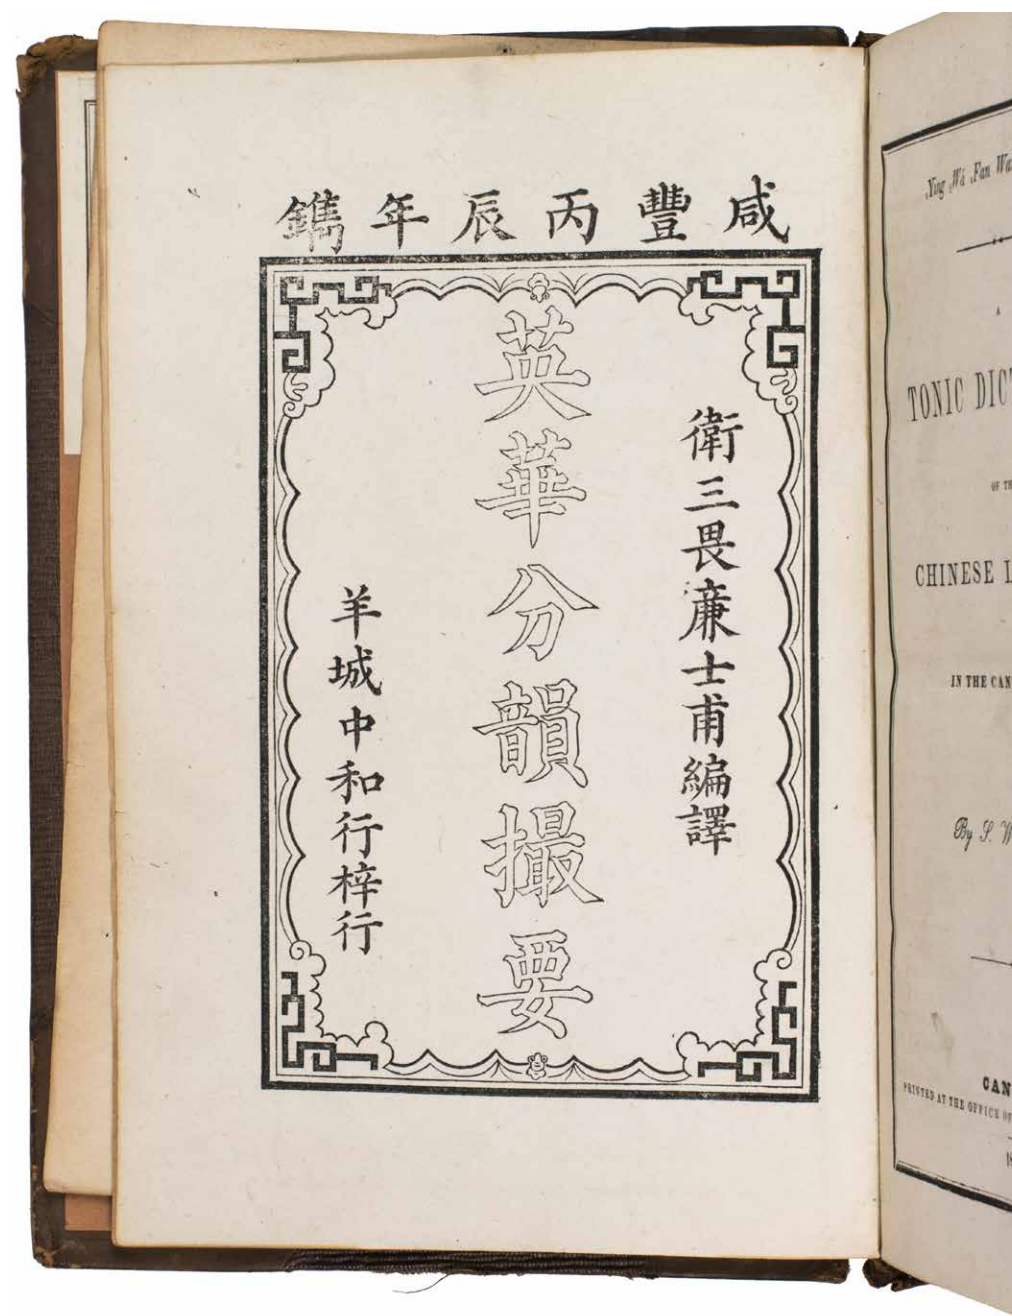 咸豐丙辰年鐫
衛三畏廉士甫編譯
英華分韻撮要
羊城中和行梓行
Ying Wá Fan Wa
A
TONIC DIC
OF TH
CHINESE L
IN THE CAN
By S. W
CAN
PRINTED AT THE OFFICE OF
18